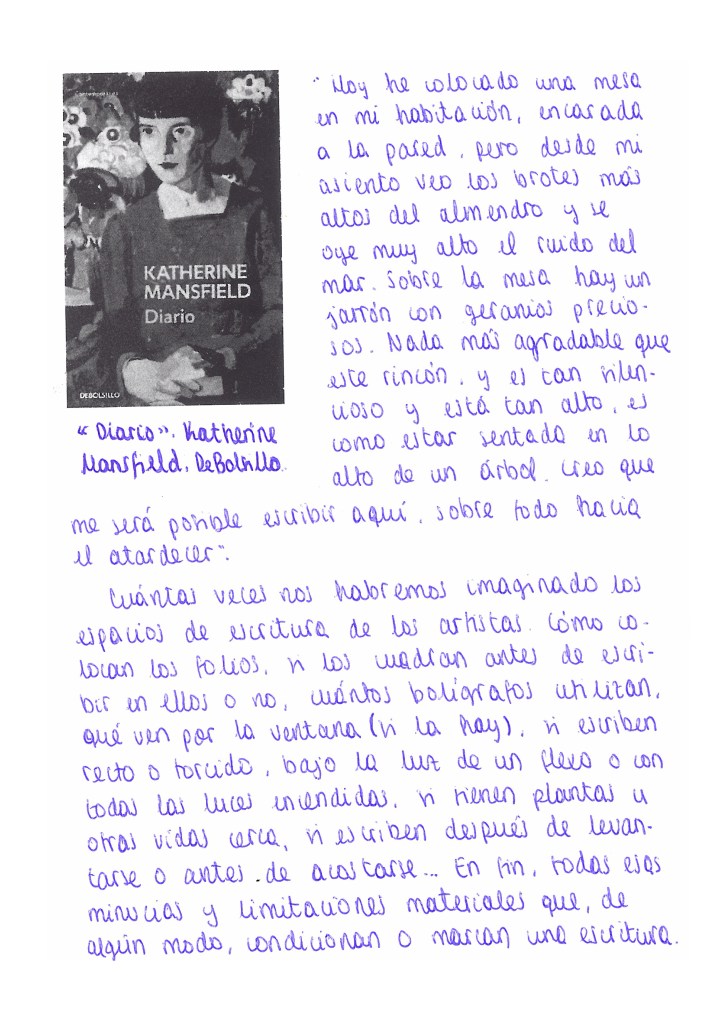 Contemporánea
KATHERINE
MANSFIELD
Diario
DEBOLS!LLO
"Diario". Katherine
Mansfield. DeBolsillo.
"Hoy he colocado una mesa
en mi habitación, encarada
a la pared, pero desde mi
asiento veo los brotes más
altos del almendro y se
oye muy alto el ruido del
mar. Sobre la mesa hay un
jarrón con geranios precio-
sos. Nada más agradable que
este rincón, y es tan silen-
cioso y está tan alto, es
como estar sentada en lo
alto de un árbol. Creo que
me será posible escribir aquí, sobre todo hacia
el atardecer".
Cuántas veces nos habremos imaginado los
espacios de escritura de los artistas. Cómo co-
locan los folios, si los cuadran antes de escri-
bir en ellos o no, cuántos bolígrafos utilizan,
qué ven por la ventana (si la hay), si escriben
recto o torcido, bajo la luz de un flexo o con
todas las luces encendidas, si tienen plantas u
otras vidas cerca, si escriben después de levan-
tarse o antes de acostarse... En fin, todas esas
minucias y limitaciones materiales que, de
algún modo, condicionan o marcan una escritura.